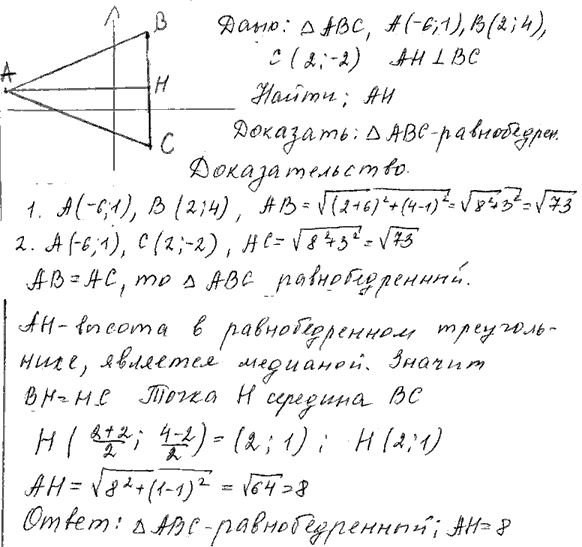 B
A
H
C
Дано: △ABC, A(-6;1), B(2;4),
C(2;-2) AH⊥BC
Найти; AH
Доказать: △ABC-равнобедрен.
Доказательство.
1. A(-6;1), B(2;4), AB=√((2+6)²+(4-1)²)=√(8²+3²)=√73
2. A(-6;1), C(2;-2), AC=√(8²+3²)=√73
AB=AC, то △ABC равнобедренный.
AH-высота в равнобедренном треуголь-
нике, является медианой. Значит
BH=HC Точка H середина BC
H((2+2)/2; (4-2)/2)=(2;1); H(2;1)
AH=√(8²+(1-1)²)=√64=8
Ответ: △ABC-равнобедренный; AH=8